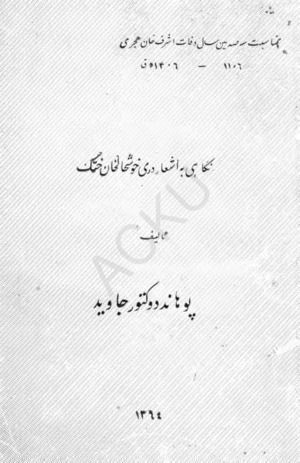 بمناسبت سه صدمین سال وفات اشرف خان هجری
۱۱۰۶ – ۱۴۰۶ ه ق
نگاهی به اشعار دری خوشحال خان خټک
تالیف
پوهاند دوکتور جاوید
۱۳۶۴
ACKU